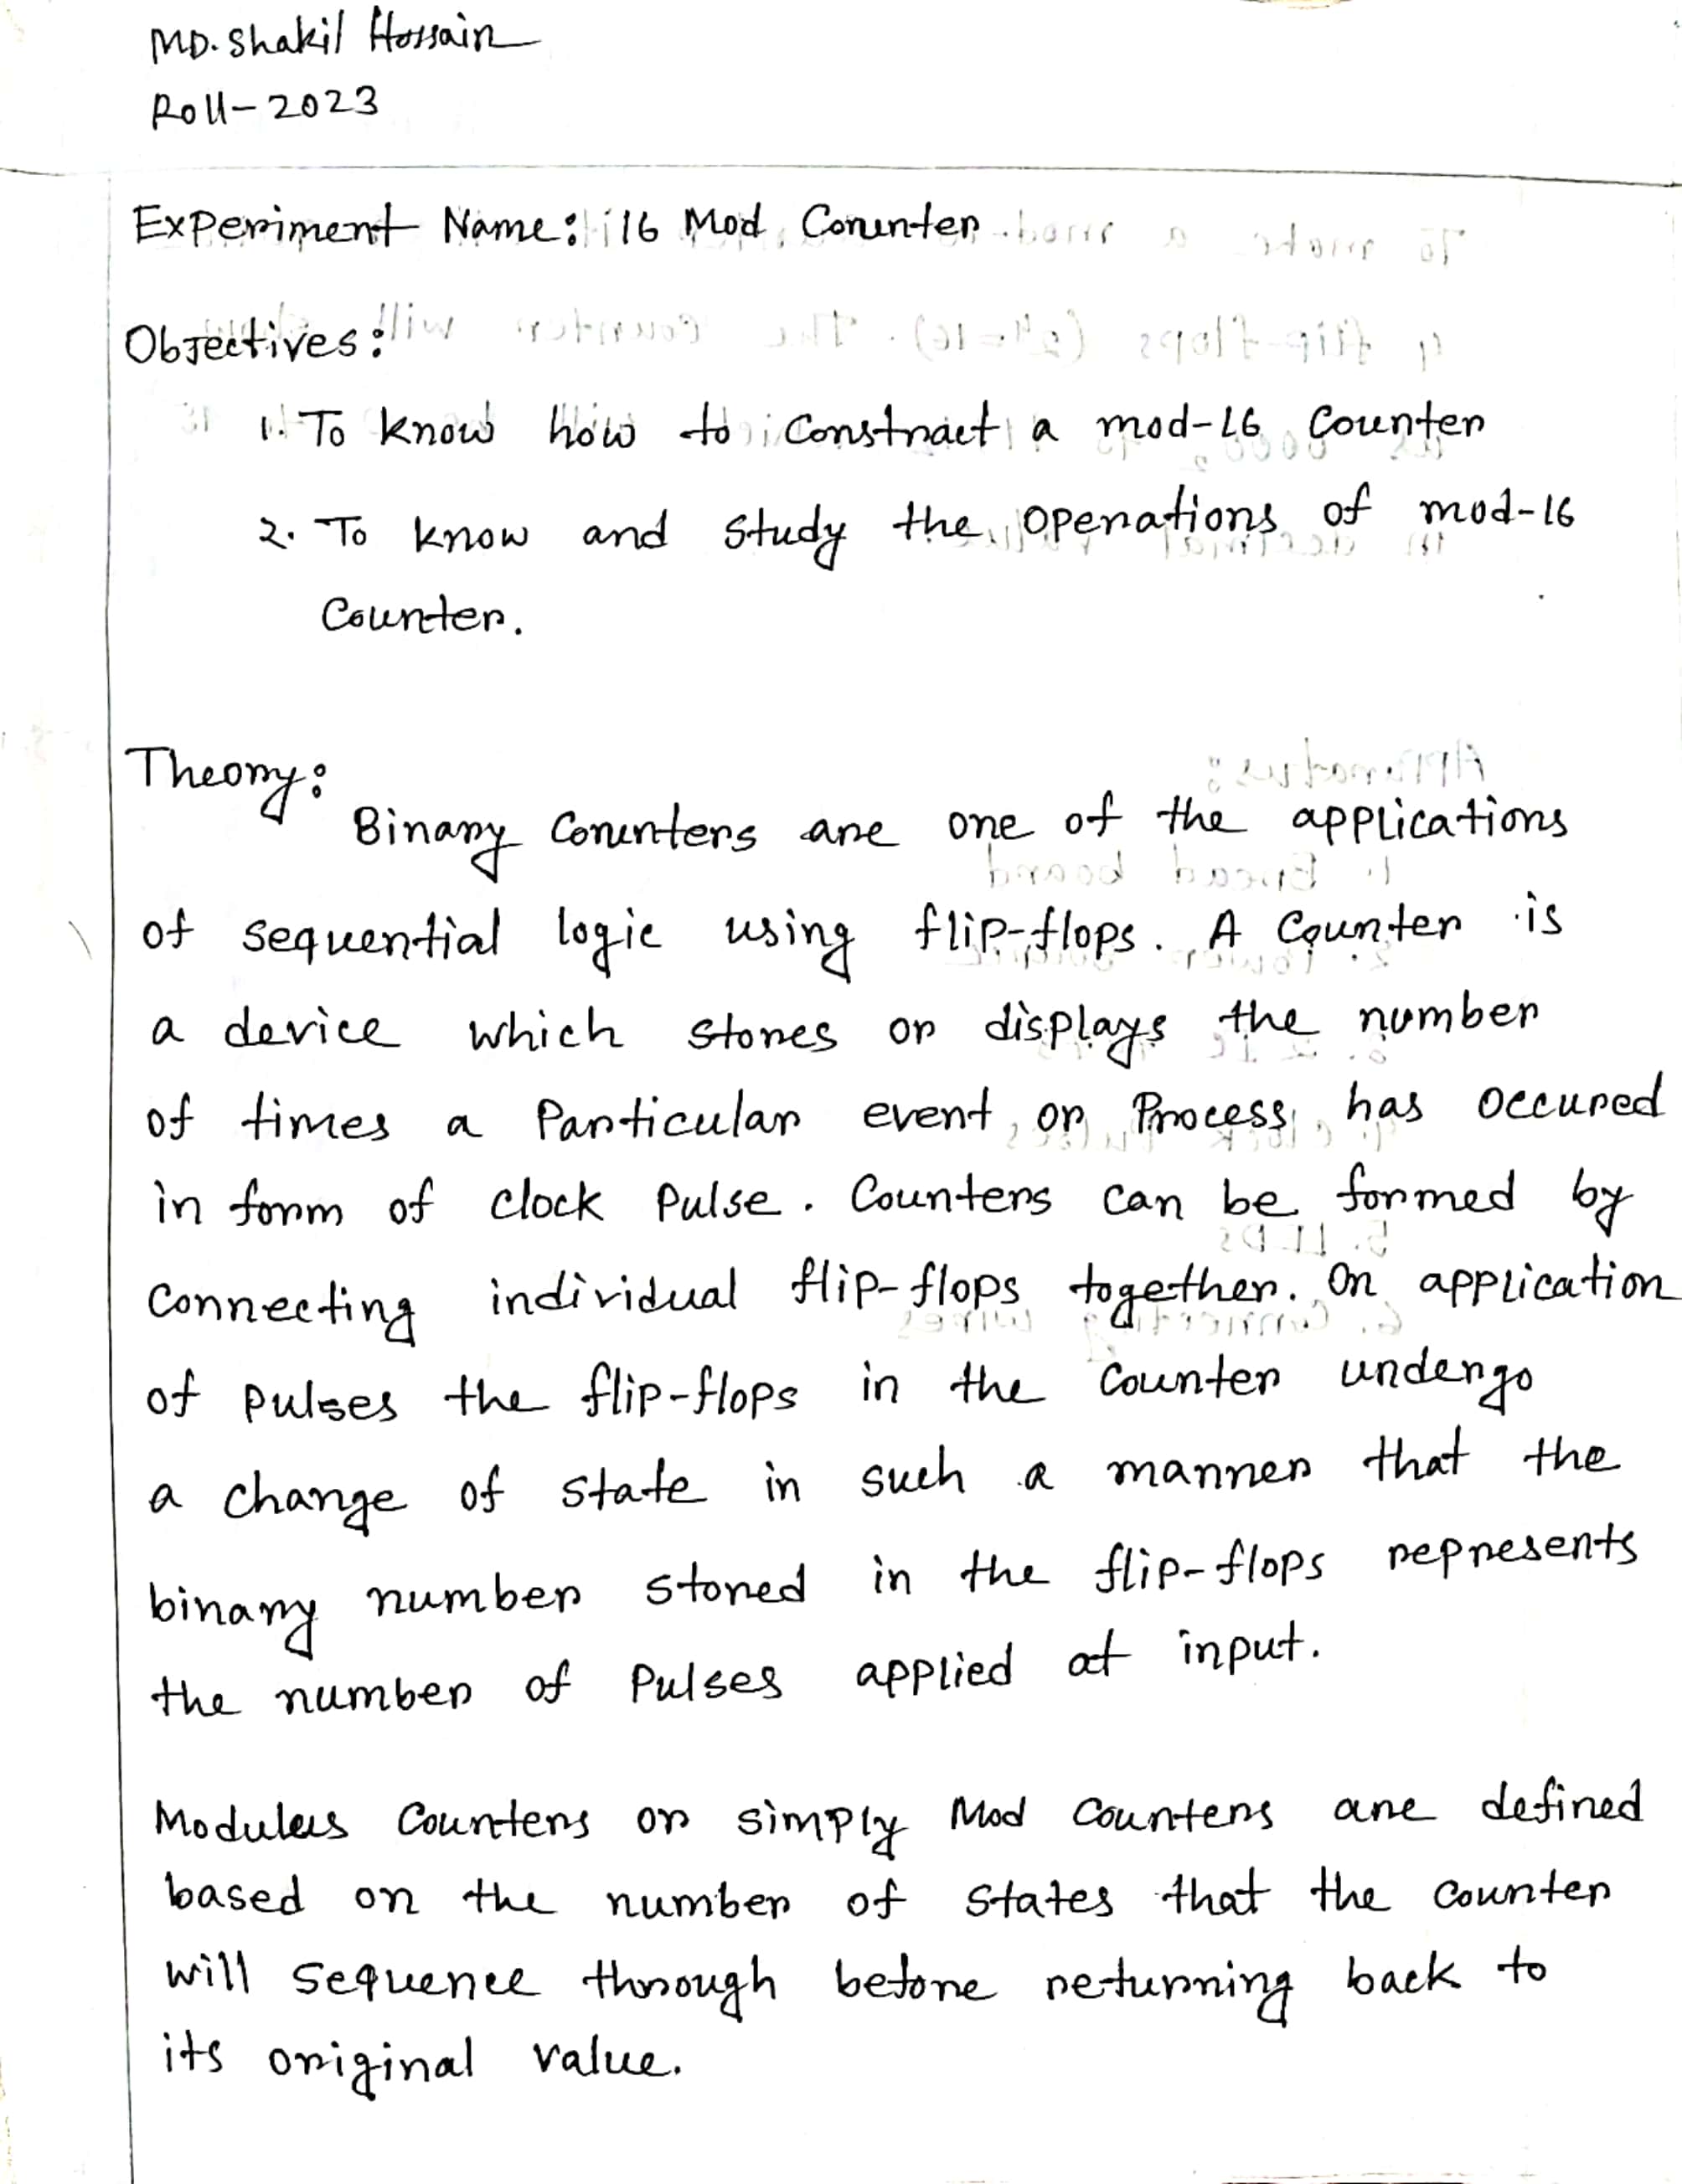 MD. Shakil Hossain
Roll-2023
Experiment Name: 16 Mod Counter.
Objectives:
1. To know how to Constract a mod-16 Counter
2. To know and study the operations of mod-16
Counter.
Theory:
Binary Counters are one of the applications
of sequential logic using flip-flops. A Counter is
a device which stores or displays the number
of times a Particular event or Process has occured
in form of clock pulse. Counters can be formed by
Connecting individual flip-flops together. On application
of pulses the flip-flops in the counter undergo
a change of state in such a manner that the
binary number stored in the flip-flops represents
the number of Pulses applied at input.
Modulus Counters or simply Mod Counters are defined
based on the number of states that the counter
will sequence through before returning back to
its original value.